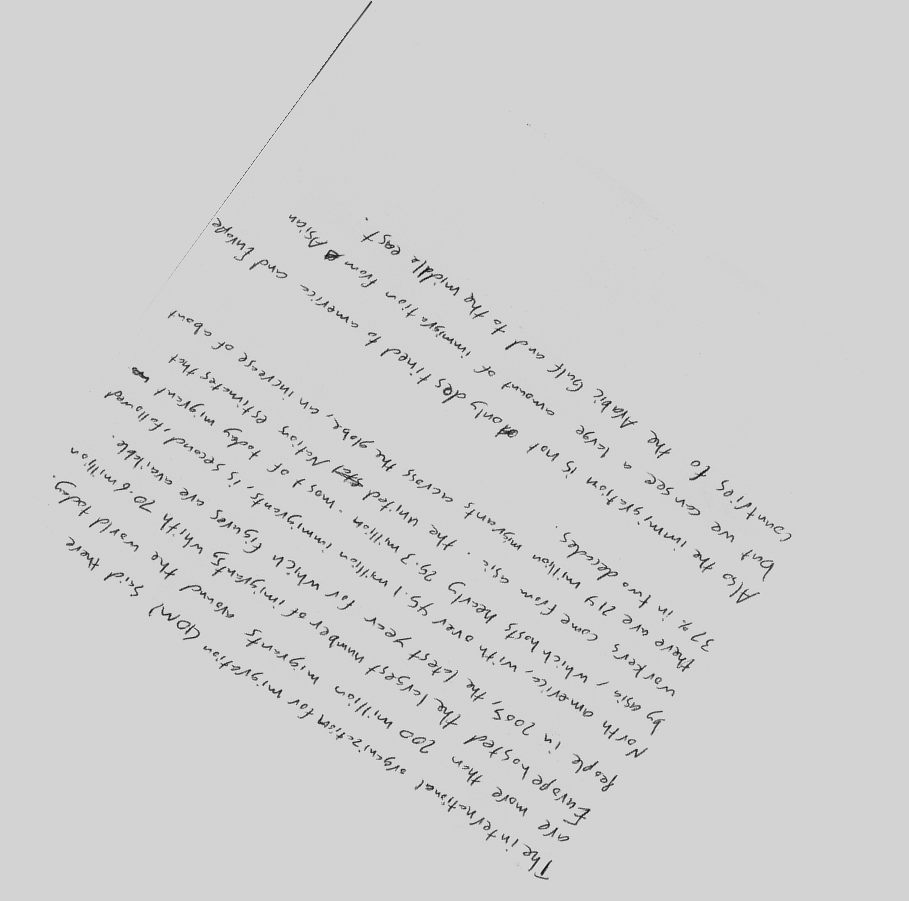 The international organization for migration (IOM) said there
are more then 200 million migrants around the world today.
Europe hosted the largest number of imigrants whith 70.6 million
people in 2005, the latest year for which figures are available.
North america, with over 45.1 million immigrants, is second, followed
by asia, which hosts nearly 25.3 million. most of today migrant
workers come from asia. the united Nations estimates that
there are 214 million migrants across the globe, an increase of about
37% in two decades.
Also the immigration is not only destined to america and Europe
but we can see a large amount of immigration from Asian
countries to the Arabic Gulf and to the middle east.